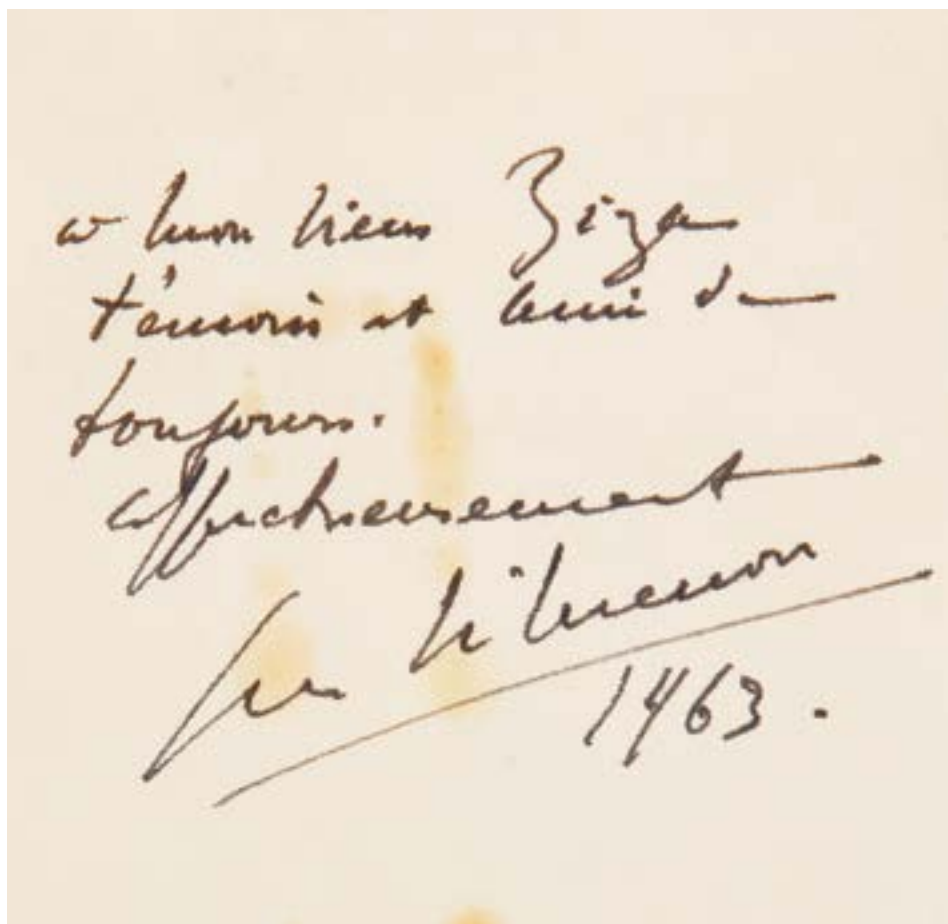 à mon vieux Ziza
témoin et ami de
toujours.
affectueusement
Jean
1963.